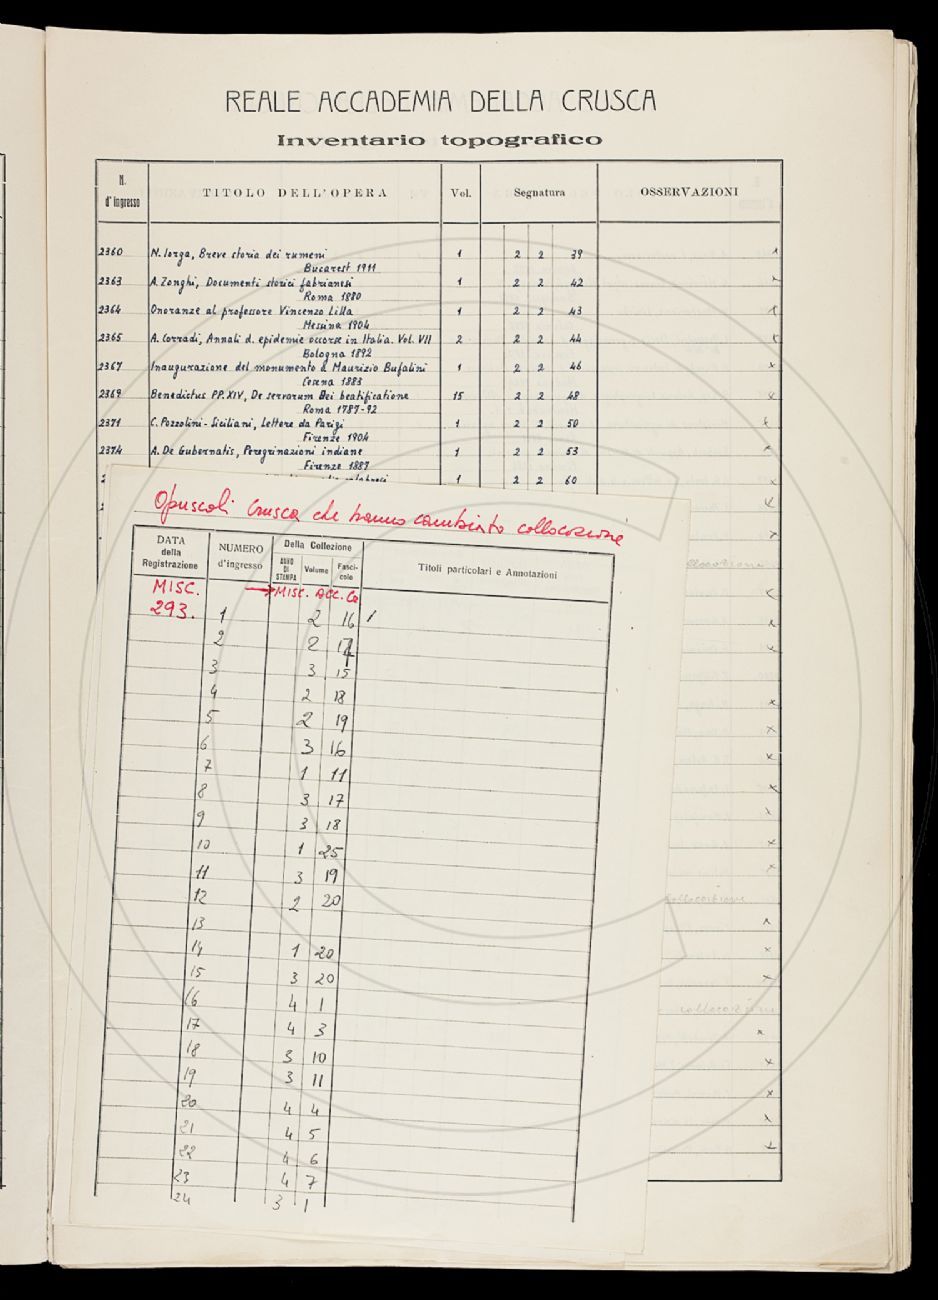 REALE ACCADEMIA DELLA CRUSCA
Inventario topografico
N. d'ingresso TITOLO DELL'OPERA Vol. Segnatura OSSERVAZIONI
2360 N. Iorga, Breve storia dei rumeni 1 2 2 39
Bucarest 1911
2363 A. Zonghi, Documenti storici fabrianesi 1 2 2 42
Roma 1880
2364 Onoranze al professore Vincenzo Lilla 1 2 2 43
Messina 1904
2365 A. Corradi, Annali d. epidemie occorse in Italia. Vol. VII 2 2 2 44
Bologna 1892
2367 Inaugurazione del monumento a Maurizio Bufalini 1 2 2 46
Cesena 1883
2369 Benedictus PP. XIV, De servorum Dei beatificatione 15 2 2 48
Roma 1787-92
2371 C. Pozzolini-Siciliani, Lettere da Parigi 1 2 2 50
Firenze 1904
2374 A. De Gubernatis, Peregrinazioni indiane 1 2 2 53
Firenze 1887
1 2 2 60
Opuscoli Crusca che hanno cambiato collocazione
DATA della Registrazione NUMERO d'ingresso Della Collezione ANNO DI STAMPA Volume Fascicolo Titoli particolari e Annotazioni
MISC. → MISC. ACC. Co
293. 1 2 16
2 2 17
3 3 15
4 2 18
5 2 19
6 3 16
7 1 11
8 3 17
9 3 18
10 1 25
11 3 19
12 2 20
13
14 1 20
15 3 20
16 4 1
17 4 3
18 3 10
19 3 11
20 4 4
21 4 5
22 4 6
23 4 7
24 3 1
collocazione
collocazione
collocazione